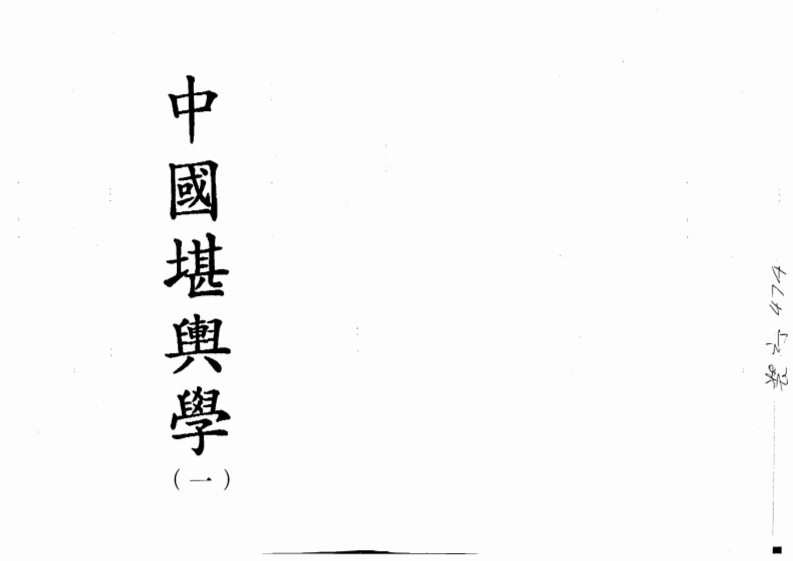 中國堪輿學
（一）
474